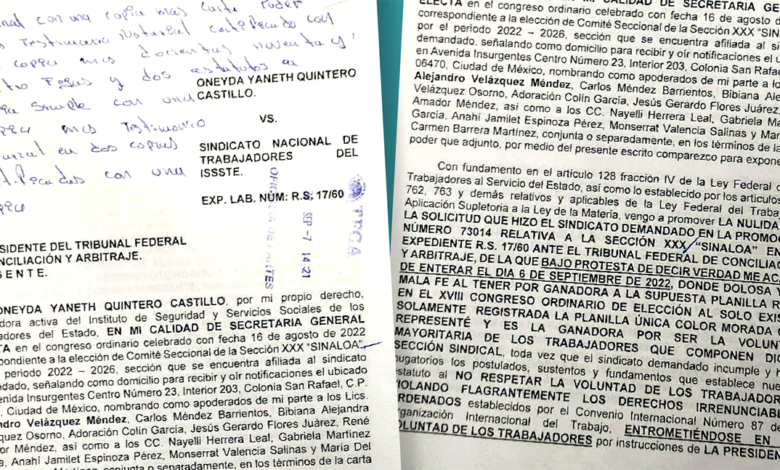 con una copia mas carta Poder
Testimonio Notarial certificado con
copia mas
Fojas y dos estatutos en
Simple con una
mas Testimonio
en dos copias
con una
ONEYDA YANETH QUINTERO
CASTILLO.
VS.
SINDICATO NACIONAL DE
TRABAJADORES DEL
ISSSTE.
EXP. LAB. NÚM: R.S. 17/60
SEP -7 14 21
TFCA
SIDENTE DEL TRIBUNAL FEDERAL
ONCILIACIÓN Y ARBITRAJE.
SENTE.
ONEYDA YANETH QUINTERO CASTILLO, por mi propio derecho,
adora activa del Instituto de Seguridad y Servicios Sociales de los
adores del Estado, EN MI CALIDAD DE SECRETARIA GENERAL
TA en el congreso ordinario celebrado con fecha 16 de agosto de 2022
pondiente a la elección de Comité Seccional de la Sección XXX "SINALOA"
periodo 2022 – 2026, sección que se encuentra afiliada al sindicato
ndado, señalando como domicilio para recibir y oír notificaciones el ubicado
venida Insurgentes Centro Número 23, Interior 203, Colonia San Rafael, C.P.
Ciudad de México, nombrando como apoderados de mi parte a los Lics.
ndro Velázquez Méndez, Carlos Méndez Barrientos, Bibiana Alejandra
zquez Osorno, Adoración Colín García, Jesús Gerardo Flores Juárez, René
or Méndez, así como a los CC. Nayelli Herrera Leal, Gabriela Martínez
Anahí Jamilet Espinoza Pérez, Monserrat Valencia Salinas y María Del
Martínez, conjunta o separadamente, en los términos de la carta
MI CALIDAD DE SECRETARIA GEN
ELECTA en el congreso ordinario celebrado con fecha 16 de agosto
correspondiente a la elección de Comité Seccional de la Sección XXX "SINAL
por el periodo 2022 – 2026, sección que se encuentra afiliada al si
demandado, señalando como domicilio para recibir y oír notificaciones el u
en Avenida Insurgentes Centro Número 23, Interior 203, Colonia San Rafae
06470, Ciudad de México, nombrando como apoderados de mi parte a lo
Alejandro Velázquez Méndez, Carlos Méndez Barrientos, Bibiana Alej
Velázquez Osorno, Adoración Colín García, Jesús Gerardo Flores Juárez,
Amador Méndez, así como a los CC. Nayelli Herrera Leal, Gabriela M
García, Anahí Jamilet Espinoza Pérez, Monserrat Valencia Salinas y Mar
Carmen Barrera Martínez, conjunta o separadamente, en los términos de la
poder que adjunto, por medio del presente escrito comparezco para expon
Con fundamento en el artículo 128 fracción IV de la Ley Federal d
Trabajadores al Servicio del Estado, así como lo establecido por los artículos
762, 763 y demás relativos y aplicables de la Ley Federal del Trabaj
Aplicación Supletoria a la Ley de la Materia, vengo a promover LA NULIDA
LA SOLICITUD QUE HIZO EL SINDICATO DEMANDADO EN LA PROMO
NÚMERO 73014 RELATIVA A LA SECCIÓN XXX "SINALOA" EN
EXPEDIENTE R.S. 17/60 ANTE EL TRIBUNAL FEDERAL DE CONCILIAC
Y ARBITRAJE, DE LA QUE BAJO PROTESTA DE DECIR VERDAD ME AC
DE ENTERAR EL DIA 6 DE SEPTIEMBRE DE 2022, DONDE DOLOSA Y
MALA FE AL TENER POR GANADORA A LA SUPUESTA PLANILLA R
EN EL XVIII CONGRESO ORDINARIO DE ELECCIÓN AL SOLO EXIS
SOLAMENTE REGISTRADA LA PLANILLA ÚNICA COLOR MORADA
REPRESENTÉ Y ES LA GANADORA POR SER LA VOLUNT
MAYORITARIA DE LOS TRABAJADORES QUE COMPONEN DI
SECCIÓN SINDICAL, toda vez que el sindicato demandado incumple y h
nugatorios los postulados, sustentos y fundamentos que establece nue
estatuto al NO RESPETAR LA VOLUNTAD DE LOS TRABAJADOR
VIOLANDO FLAGRANTEMENTE LOS DERECHOS IRRENUNCIAB
ORDENADOS establecidos por el Convenio Internacional Número 87 de
Organización Internacional del Trabajo, ENTROMETIÉNDOSE EN
VOLUNTAD DE LOS TRABAJADORES por instrucciones de LA PRESIDE